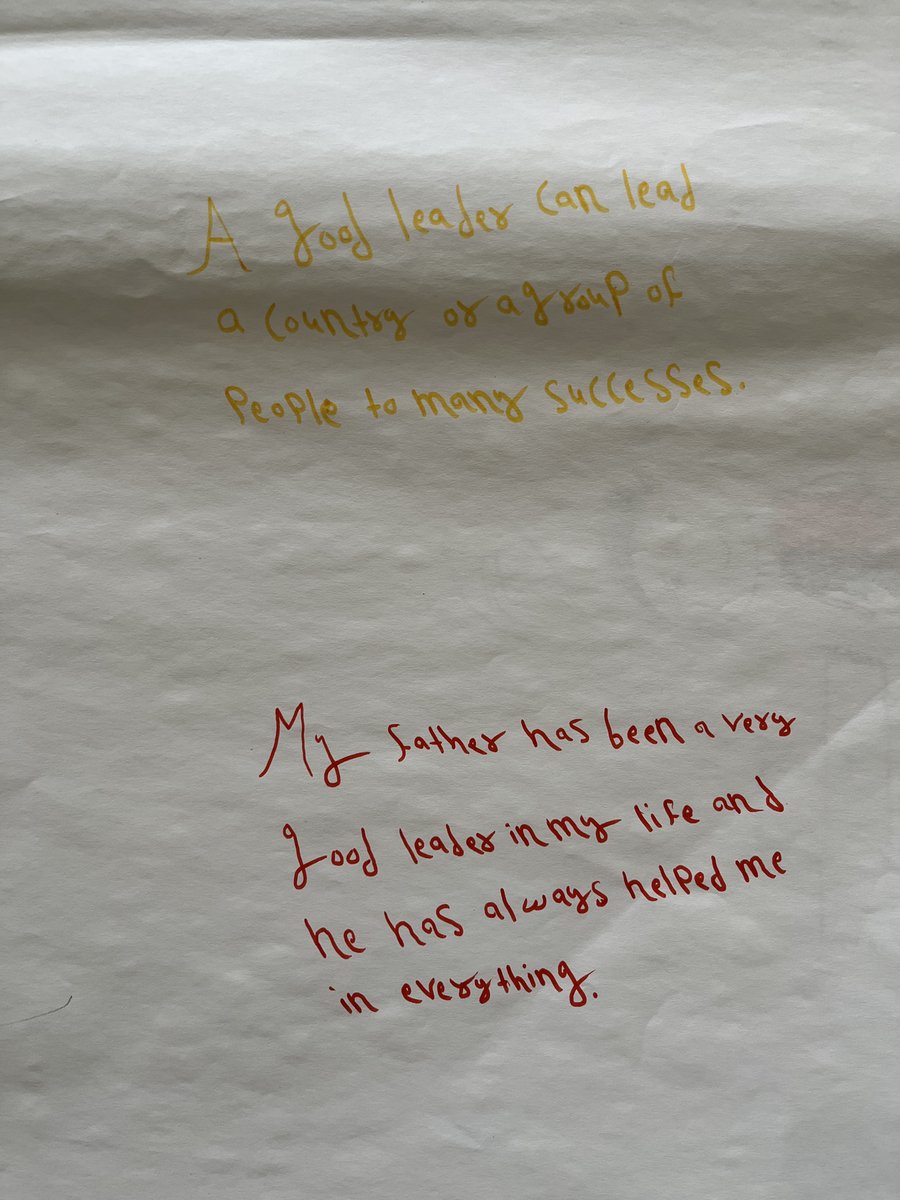 A good leader can lead
a country or a group of
People to many successes.
My father has been a very
good leader in my life and
he has always helped me
in everything.